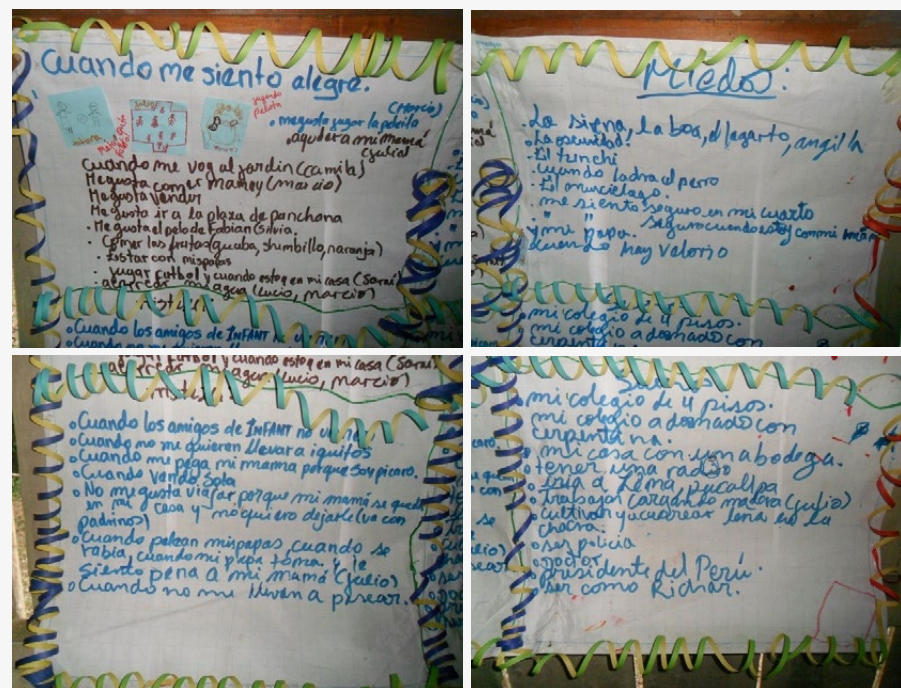 Cuando me siento alegre.
(Marcio)
• me gusta jugar la pelota
• ayudar a mi mamá
(julia)
jugando pelota
Cuando me voy al jardin (camila)
Me gusta comer mamey (marcio)
Me gusta vender
Me gusta ir a la plaza de panchana
• Me gusta el pelo de Fabian (Silvia.
• Comer las frutas (guaba, shumbillo, naranja)
• Estar con mis papas
• jugar futbol y cuando estoy en mi casa (Sarai
agua (Lucio, marcio)
• Cuando los amigos de INFANT
Miedo:
. La sirena, la boa, el lagarto, anguilla
. La oscuridad.
. El tunchi
. cuando ladra el perro
. El murcielago.
. me siento seguro en mi cuarto
. " " seguro cuando estoy con mi mamá
y mi papa.
cuando hay Velorio
mi colegio de 4 pisos.
mi colegio adornado con
jugar futbol y cuando estoy en mi casa (Sarai
agua (Lucio, marcio)
• Cuando los amigos de INFANT no
• Cuando no me quieren llevar a iquitos
• Cuando me pega mi mamma porque soy picaro.
• Cuando vendo sola
• No me gusta viajar porque mi mamá se queda
en mi casa y no quiero dejarle (va con
padrinos)
• Cuando pelean mis papas, cuando se
rabia, cuando mi papa toma. y le
siento pena a mi mamá (julio)
• Cuando no me llevan a pasear.
• mi colegio de 4 pisos.
mi colegio adornado con
cerpentina.
• mi casa con una bodega.
• tener una radio
• iria a Lima, pucallpa
• trabajar cargando madera (julio)
• cultivar y cucarear lena en la
chacra.
• ser policia
• doctor.
• presidente del Perú.
• ser como Richar.